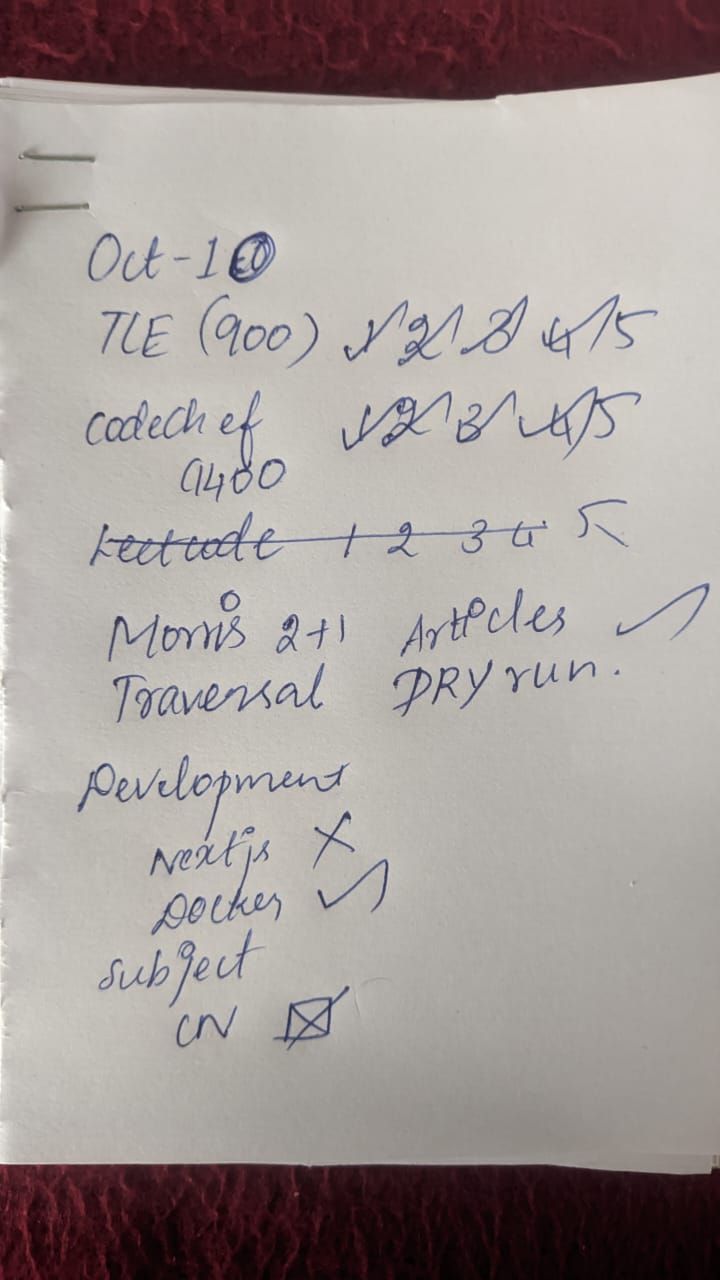 Oct-10
TLE (900) 1 2 3 4 5
codechef 1 2 3 4 5
1400
Leetcode 1 2 3 4 5
Morris 2+1 Articles
Traversal DRY run.
Development
Nextjs
Docker
subject
CN